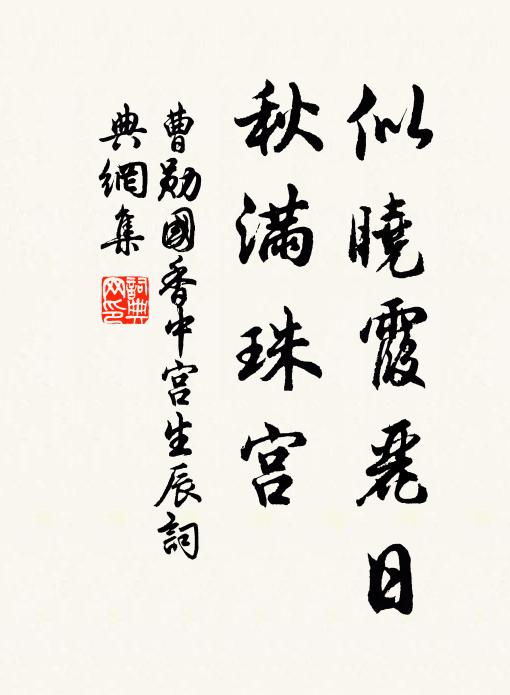 似曉霞麗日
秋滿珠宮
曹勛國香中宮生辰詞
典網集
詞典网印